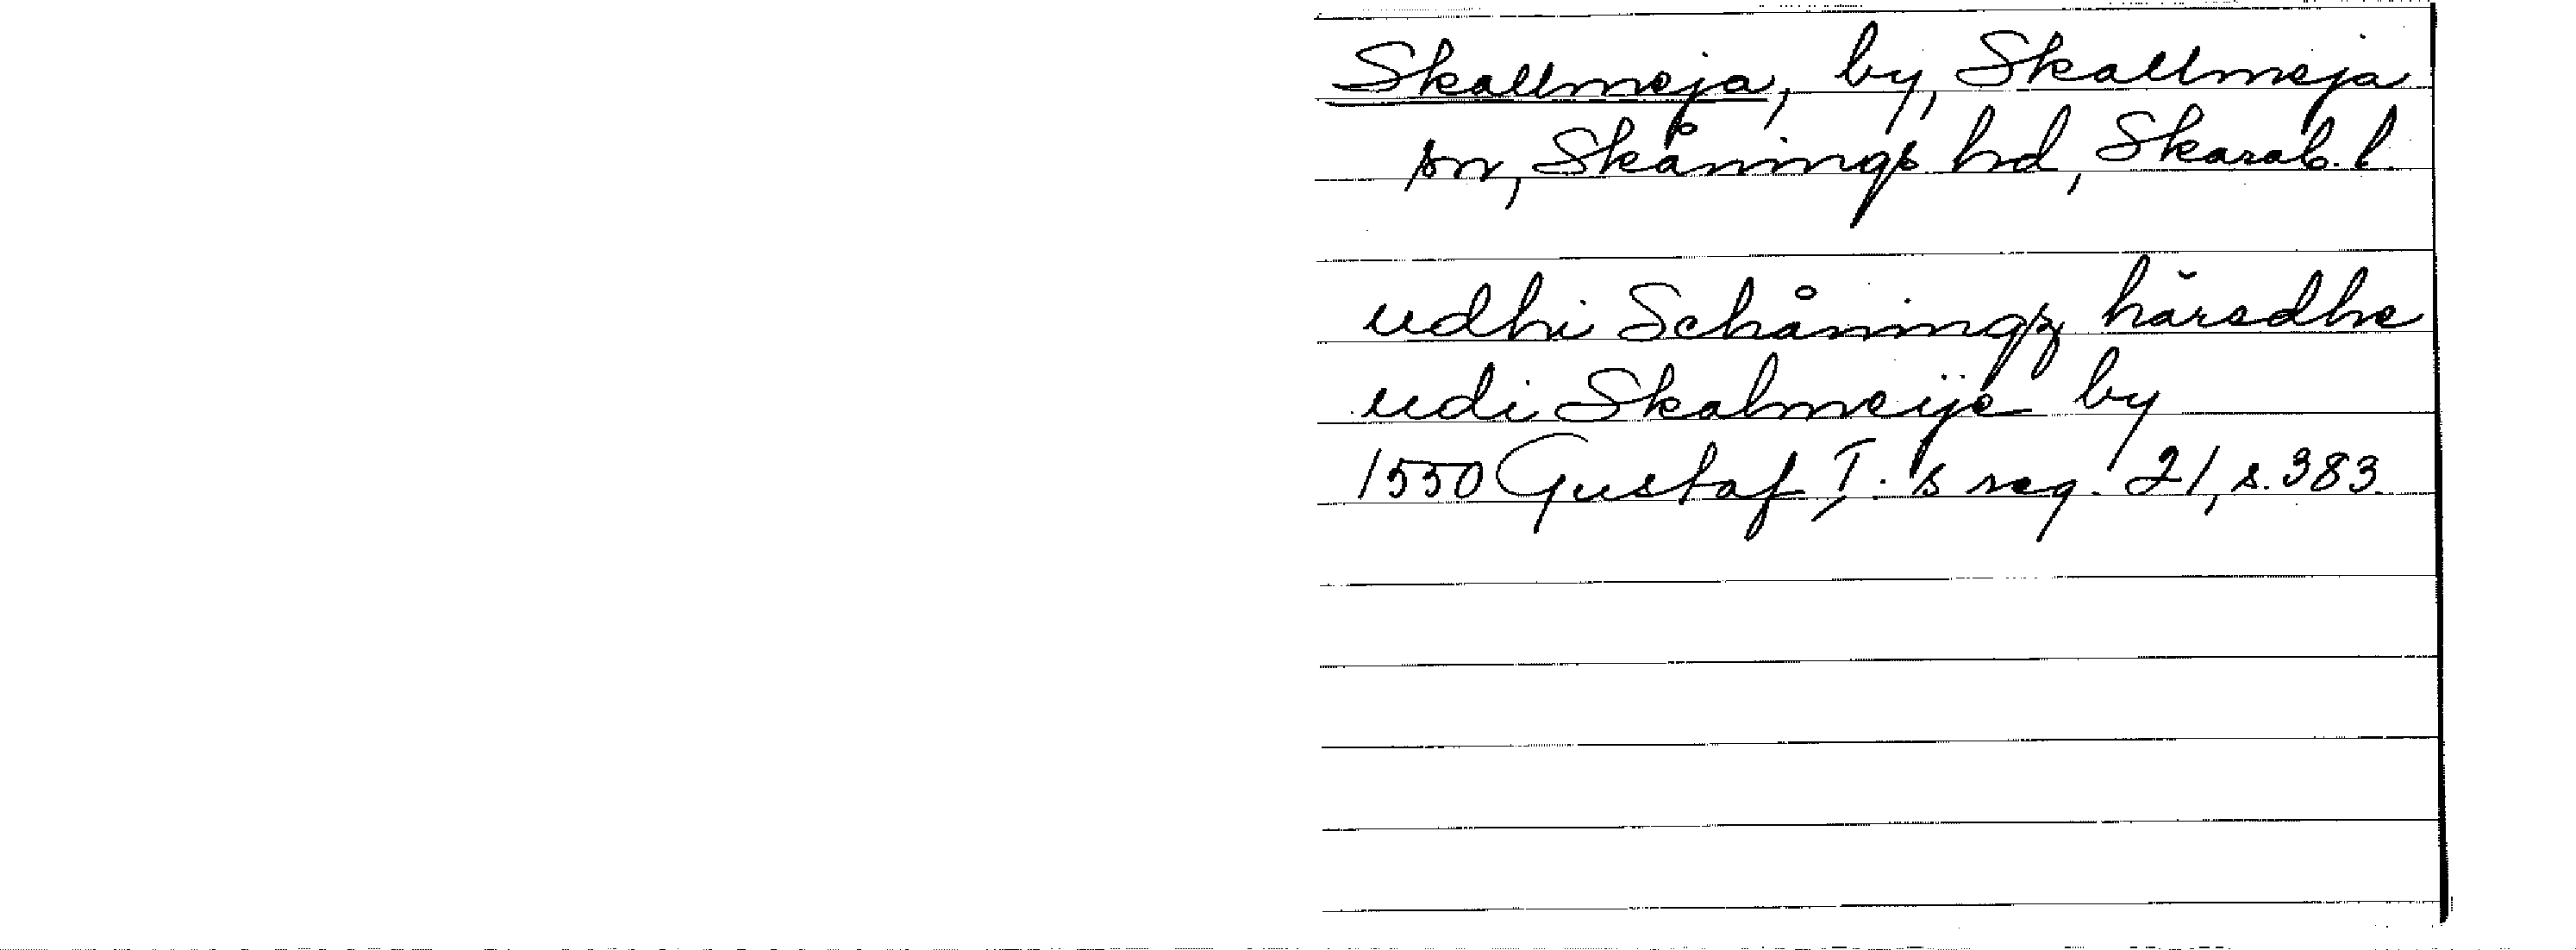 Skallmeja, by, Skallmeja
sn, Skånings hd, Skarab. l.
udhi Schåningz härsdhe
udi Skalmeije by
1550 Gustaf I:s reg. 21, s. 383.